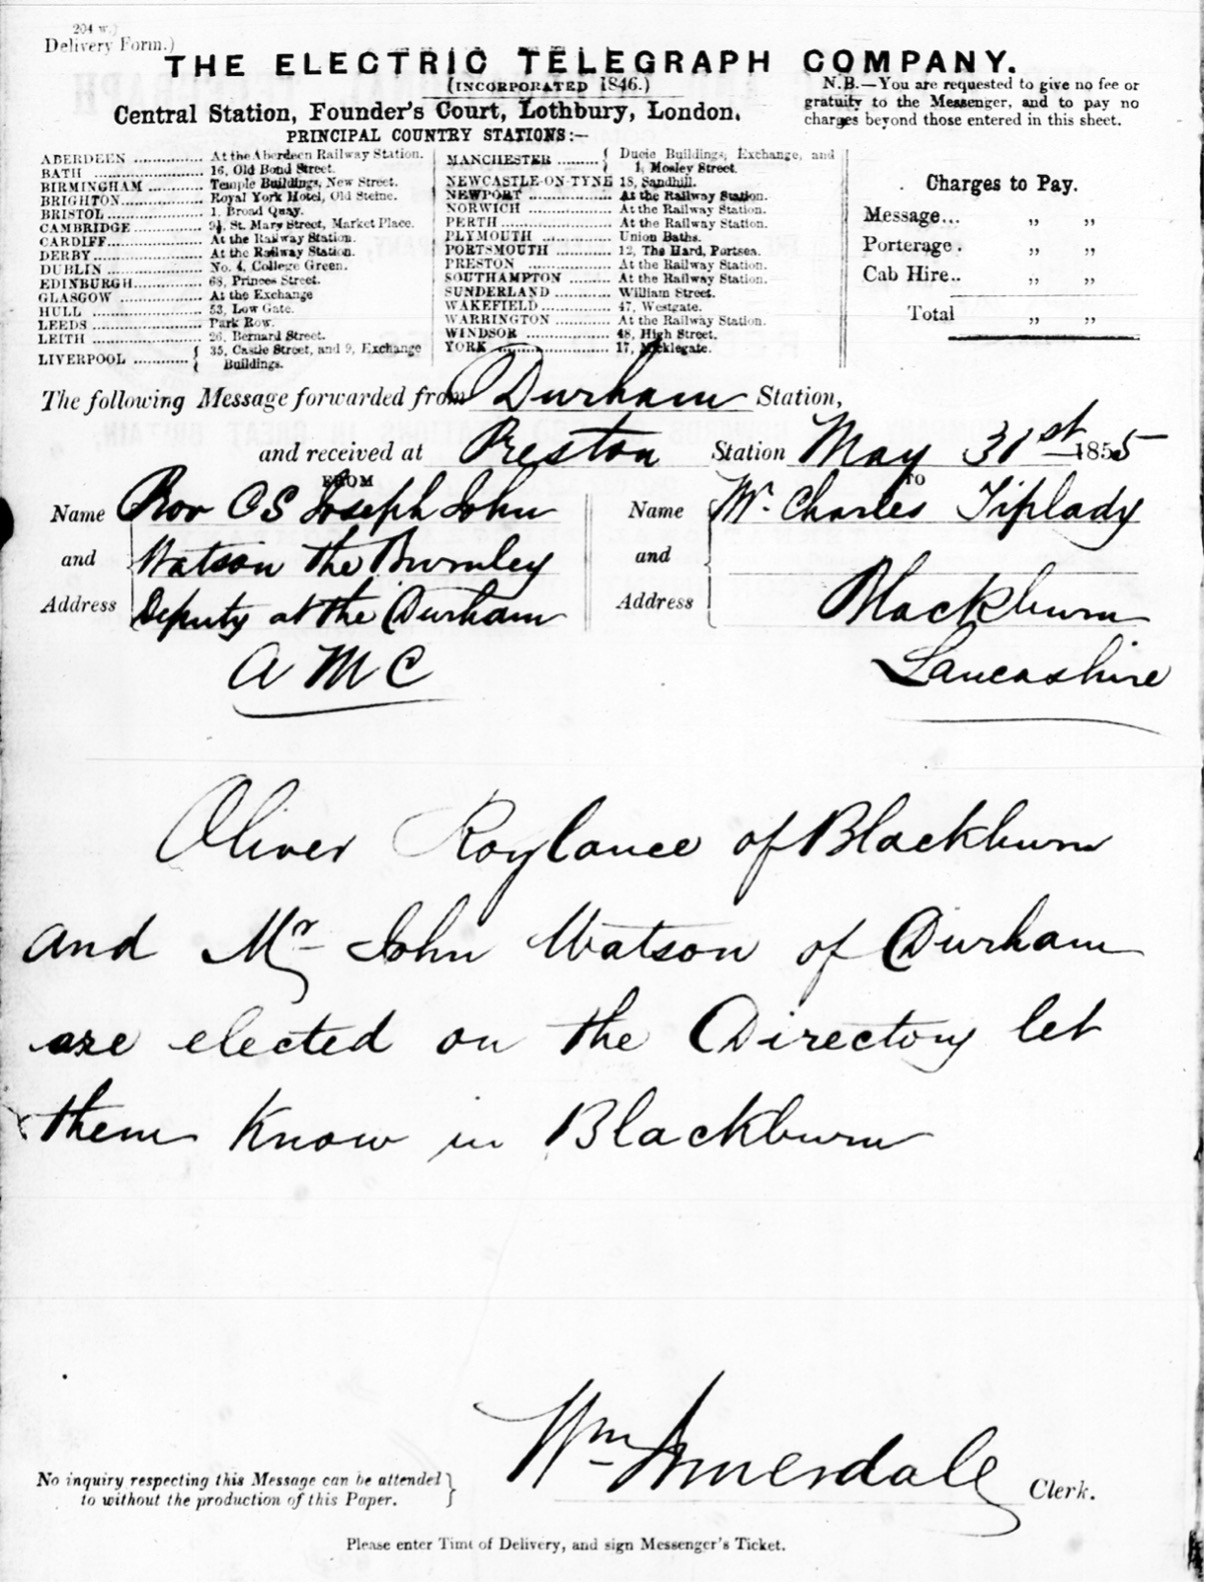 204 w.)
Delivery Form.)
THE ELECTRIC TELEGRAPH COMPANY.
(INCORPORATED 1846.)
Central Station, Founder's Court, Lothbury, London.
PRINCIPAL COUNTRY STATIONS:—
N.B.—You are requested to give no fee or
gratuity to the Messenger, and to pay no
charges beyond those entered in this sheet.
ABERDEEN ............... At the Aberdeen Railway Station.
BATH ............... 16, Old Bond Street.
BIRMINGHAM ........... Temple Buildings, New Street.
BRIGHTON............... Royal York Hotel, Old Steine.
BRISTOL............... 1, Broad Quay.
CAMBRIDGE ............... 9½, St. Mary Street, Market Place.
CARDIFF............... At the Railway Station.
DERBY............... At the Railway Station.
DUBLIN ............... No. 4, College Green.
EDINBURGH............... 68, Princes Street.
GLASGOW ............... At the Exchange
HULL ............... 53, Low Gate.
LEEDS ............... Park Row.
LEITH ............... 26, Bernard Street.
LIVERPOOL ............ { 35, Castle Street, and 9, Exchange
Buildings.
MANCHESTER ........ { Ducie Buildings, Exchange, and
1, Mosley Street.
NEWCASTLE-ON-TYNE 18, Sandhill.
NEWPORT ............... At the Railway Station.
NORWICH ............... At the Railway Station.
PERTH ............... At the Railway Station.
PLYMOUTH ............ Union Baths.
PORTSMOUTH ........... 12, The Hard, Portsea.
PRESTON ............... At the Railway Station.
SOUTHAMPTON ........ At the Railway Station.
SUNDERLAND ........... William Street.
WAKEFIELD............... 47, Westgate.
WARRINGTON ............ At the Railway Station.
WINDSOR ............... 48, High Street.
YORK ............... 17, Micklegate.
Charges to Pay.
Message... ,, ,,
Porterage . ,, ,,
Cab Hire.. ,, ,,
Total ,, ,,
The following Message forwarded from Durham Station,
and received at Preston Station May 31st 1855
FROM
Name and Address
Prov C S Joseph John
Watson the Burnley
Deputy at the Durham
A M C
TO
Name and Address
Mr. Charles Tiplady
Blackburn
Lancashire
Oliver Roylance of Blackburn
and Mr John Watson of Durham
are elected on the Directory let
them Know in Blackburn
Wm Clerk.
No inquiry respecting this Message can be attended
to without the production of this Paper.
Please enter Time of Delivery, and sign Messenger's Ticket.